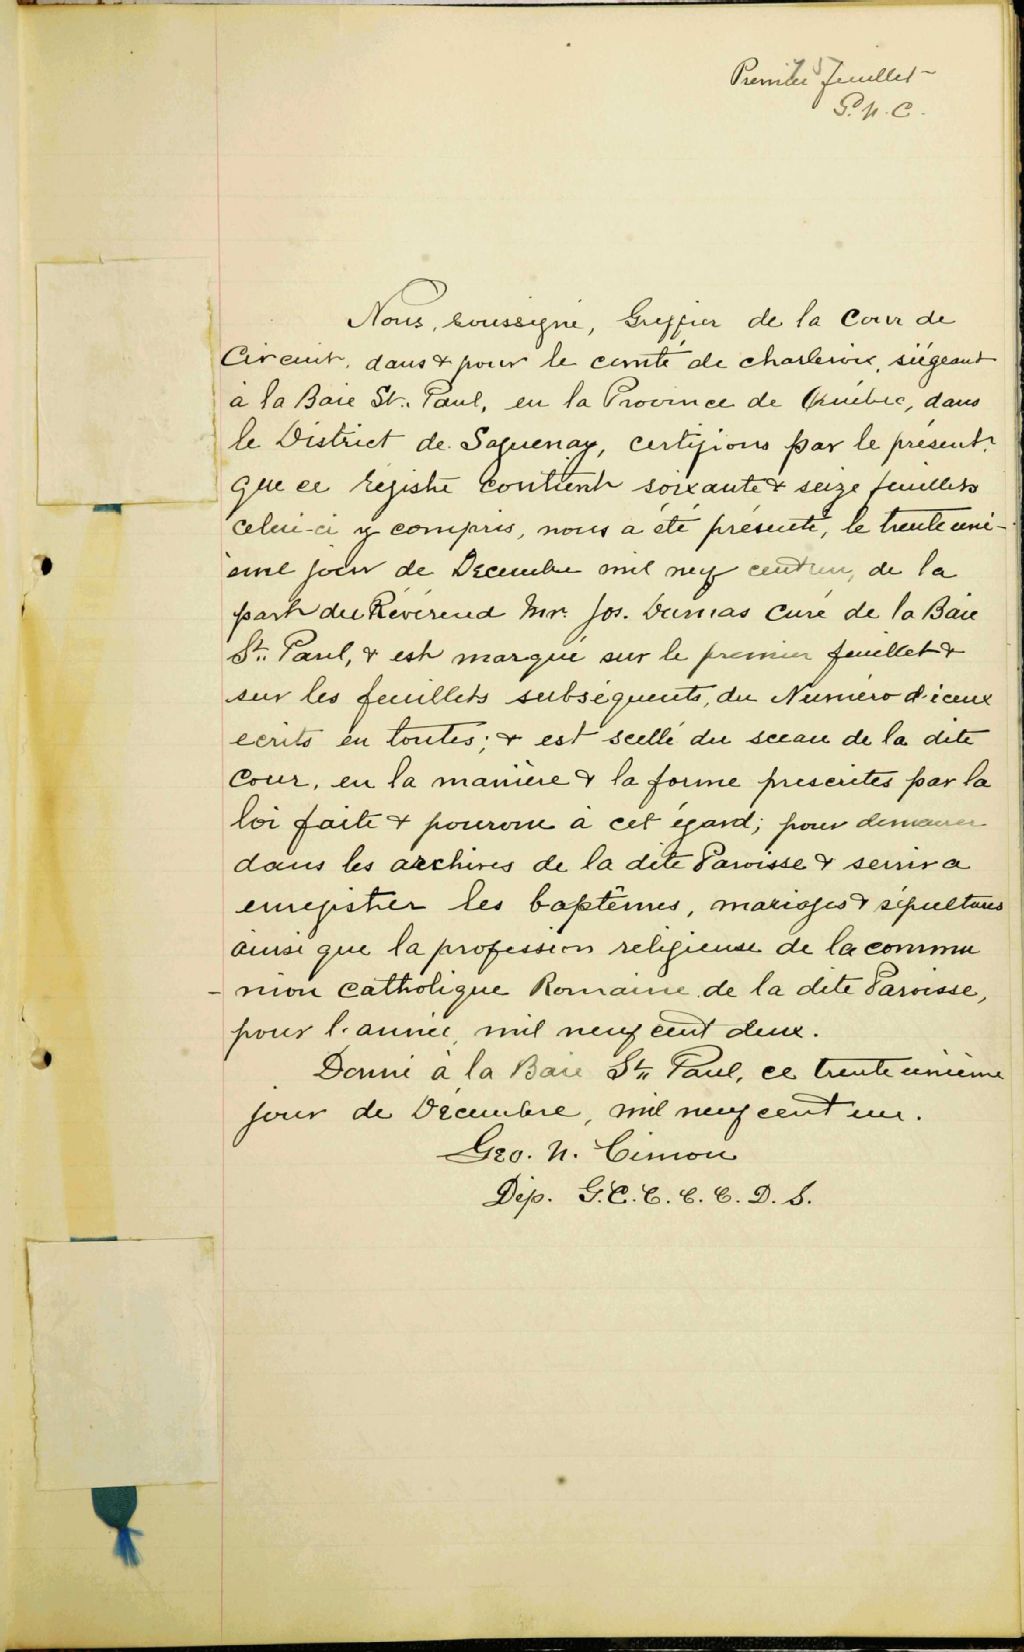 Premier feuillet
G. N. C.
Nous, soussigné, Greffier de la Cour de
Circuit, dans & pour le comté de Charlevoix, siégeant
à la Baie St. Paul, en la Province de Québec, dans
le District de Saguenay, certifions par le présent
que ce régistre contient soixante & seize feuillets
celui-ci y compris, nous a été présenté, le trente uni-
ème jour de Décembre mil neuf cent un, de la
part du Révérend Mr. Jos. Dumas Curé de la Baie
St. Paul, & est marqué sur le premier feuillet &
sur les feuillets subséquents, du Numéro d'iceux
ecrits en toutes; & est scellé du sceau de la dite
Cour, en la manière & la forme prescrites par la
loi faite & pourvue à cet égard; pour demeurer
dans les archives de la dite Paroisse & servir a
enregistrer les baptêmes, mariages & sépultures
ainsi que la profession religieuse de la commu
- nion Catholique Romaine de la dite Paroisse,
pour l'année mil neuf cent deux.
Donné à la Baie St. Paul, ce trente unième
jour de Décembre, mil neuf cent un.
Geo. N. Cimon
Dép. G. C. C. C. C. D. S.